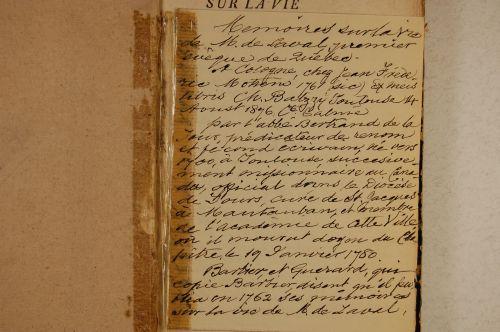 SUR LA VIE
Memoires sur la Vie
de M. de Laval, premier
Evêque de Québec.
A Cologne, chez Jean Fréde-
ric Motiens 176 (sic) Ex meis
libris Ch. Toulouse 14
Aoust 1896
par l'abbé Bertrand de la
Tour, prédicateur de renom
et fécond ecrivain, né vers
1700, à Toulouse, successive
ment missionnaire au Cana
da, official dans le Diocèse
de Tours, curé de St. Jacques
à Montauban, et membre
de l'académie de cette Ville
où il mourut doyen du Cha
pitre, le 19 Janvier 1780.
Barbier et Guerard, qui
copie Barbier disent qu'il pu
blia en 1762 Ses mémoires
sur la vie de M. de Laval,